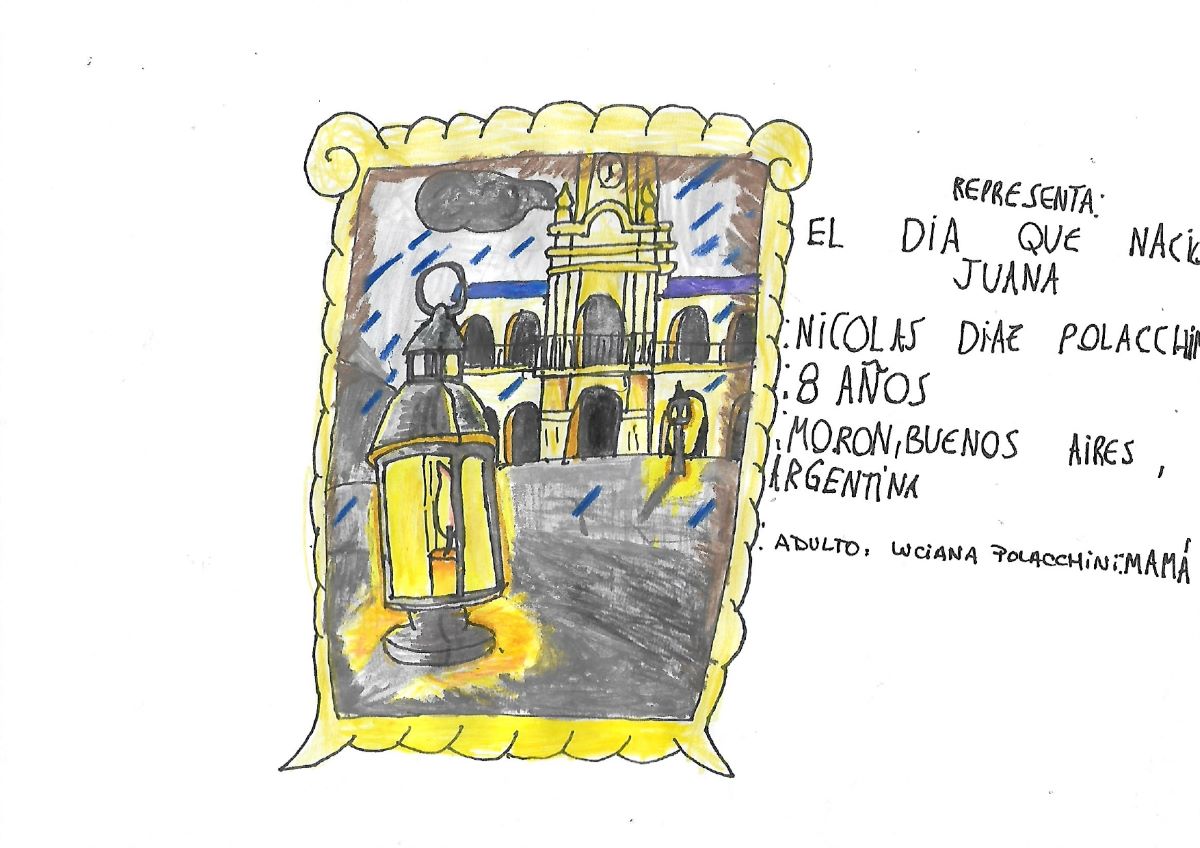 REPRESENTA:
EL DIA QUE NACIO
JUANA
:NICOLAS DIAZ POLACCHIN
:8 AÑOS
:MORON,BUENOS AIRES,
ARGENTINA
: ADULTO: LUCIANA POLACCHINI:MAMÁ